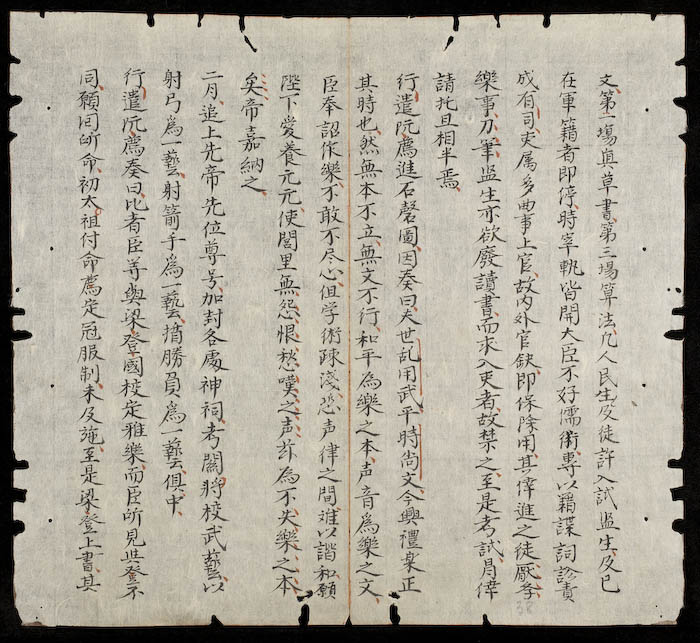 文、第二場真草書、第三場算法、凢人民生及徒許入試监生及已
在軍籍者即停、時宰執皆開大臣不好儒術專以籍諜詞訟責
成有司吏属多曲事上官、故内外官缺即保除用、其倖進之徒厭学
樂事刀筆监生亦欲廢讀書而求入吏者故禁之至是考試月倖
請托且相半焉
行遣阮廌進石磬圖、因奏曰夫世乱用武平時尚文、今興禮樂正
其時也、然無本不立、無文不行、和平為樂之本、声音為樂之文
臣奉詔作樂不敢不尽心但学術踈淺、恐声律之間难以諧和願
陛下愛養元元使閭里無怨恨愁嘆之声茲為不失樂之本
矣帝嘉納之
二月、追上先帝先位尊号、加封各處神祠、考閱將校武藝、以
射弓為一藝射箭手為一藝揹勝負為一藝、俱中
行遣阮廌奏曰比者臣等與梁登國校定雅樂、而臣所見與登不
同願囬所命、初太祖付命廌定冠服制未及施、至是梁登上書、其
38